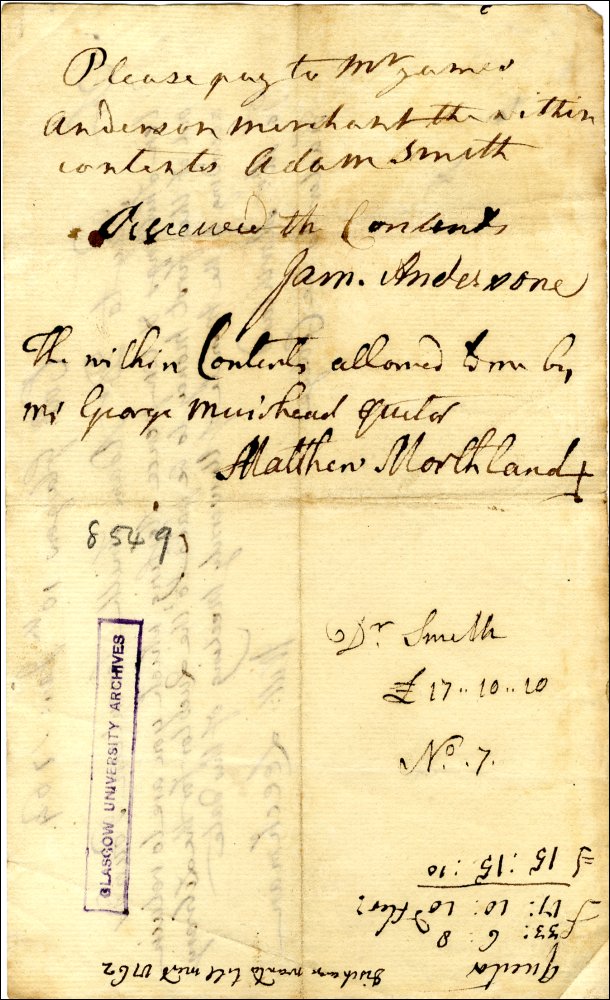 Please pay to Mr James
Anderson merchant the within
contents Adam Smith
Received the Contents
Jam. Andersone
The within Contents allowed to me by
Mr George Muirhead Quetor
Matthew Morthland
8549
GLASGOW UNIVERSITY ARCHIVES
Dr. Smith
£ 17 .. 10 .. 10
No. 7.
wants till 1762
Questor
£ 33: 6: 8
17: 10: 10
£ 15: 15: 10